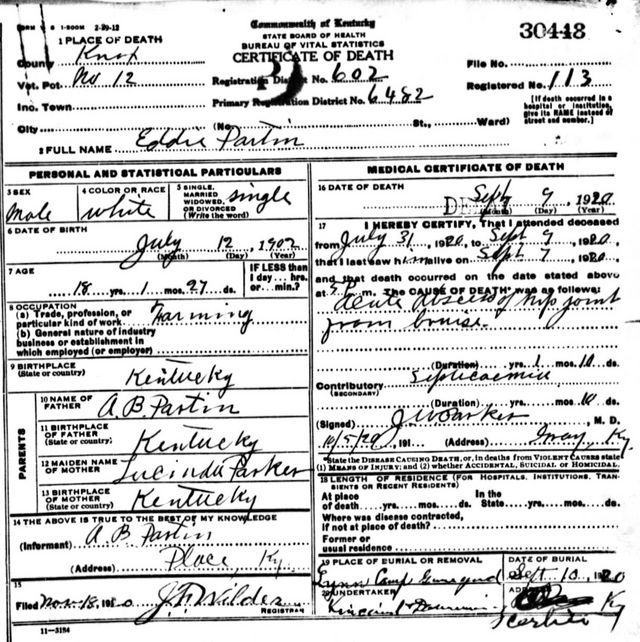 2-29-12
Commonwealth of Kentucky
STATE BOARD OF HEALTH
BUREAU OF VITAL STATISTICS
CERTIFICATE OF DEATH
30443
1 PLACE OF DEATH
County Knox
Vot. Pot. No 12
Inc. Town
City
Registration District No. 602
Primary Registration District No. 6482
File No.
Registered No. 113
[If death occurred in a hospital or institution, give its NAME instead of street and number.]
(No. St., Ward)
2 FULL NAME Eddie Partin
PERSONAL AND STATISTICAL PARTICULARS
3 SEX Male
4 COLOR OR RACE white
5 SINGLE, MARRIED WIDOWED, OR DIVORCED (Write the word) single
6 DATE OF BIRTH July 12, 1902
(Month) (Day) (Year)
7 AGE 18 yrs. 1 mos. 27 ds.
IF LESS than 1 day hrs. or min.?
8 OCCUPATION
(a) Trade, profession, or particular kind of work Farming
(b) General nature of industry
business or establishment in
which employed (or employer)
9 BIRTHPLACE
(State or country) Kentucky
PARENTS
10 NAME OF FATHER A. B. Partin
11 BIRTHPLACE OF FATHER (State or country) Kentucky
12 MAIDEN NAME OF MOTHER Lucinda Parker
13 BIRTHPLACE OF MOTHER (State or country) Kentucky
14 THE ABOVE IS TRUE TO THE BEST OF MY KNOWLEDGE
(Informant) A B Partin
Place, Ky
15
Filed Nov. 18, 1920 J. F. Wilder
REGISTRAR
11-3184
MEDICAL CERTIFICATE OF DEATH
16 DATE OF DEATH Sept 9, 1920
(Month) (Day) (Year)
17 I HEREBY CERTIFY, That I attended deceased
from July 31, 1920, to Sept 9, 1920
that I last saw him alive on Sept 7, 1920
and that death occurred on the date stated above
at m. The CAUSE OF DEATH* was as follows:
Acute Abscess of hip joint
from bruise.
(Duration) yrs. 1 mos. 10 ds.
Contributory Septicaemia
(SECONDARY)
(Duration) yrs. mos. 10 ds.
(Signed) J. W. Parker, M. D.
10/5/20, 191 (Address) Gray, Ky.
*State the DISEASE CAUSING DEATH, or, in deaths from VIOLENT CAUSES state
(1) MEANS OF INJURY; and (2) whether ACCIDENTAL, SUICIDAL OR HOMICIDAL.
18 LENGTH OF RESIDENCE (FOR HOSPITALS, INSTITUTIONS, TRANSIENTS OR RECENT RESIDENTS)
At place of death yrs. mos. ds. In the State yrs. mos. ds.
Where was disease contracted,
if not at place of death?
Former or
usual residence
19 PLACE OF BURIAL OR REMOVAL Lynn Camp
DATE OF BURIAL Sept 10, 1920
20 UNDERTAKER
Ky